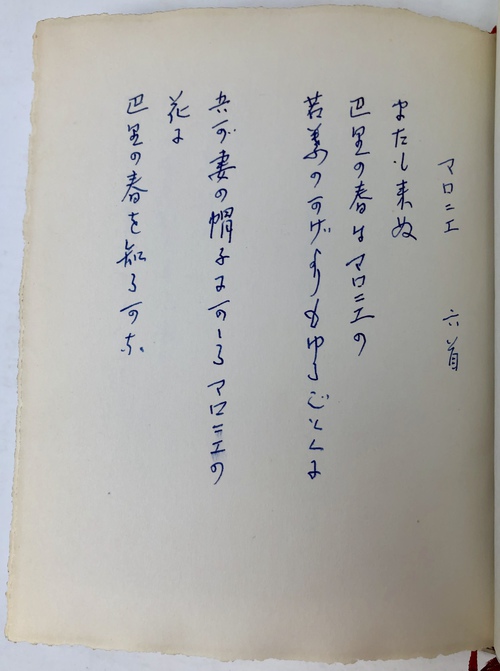 マロニエ　六首
またも来ぬ
巴里の春はマロニエの
若葉のかげよりもゆるごとくに
わが妻の帽子にかゝるマロニエの
花に
巴里の春を知るかな